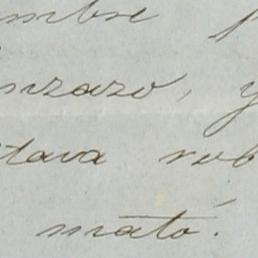 mbre p
nzazo, y
stava rob
mató.